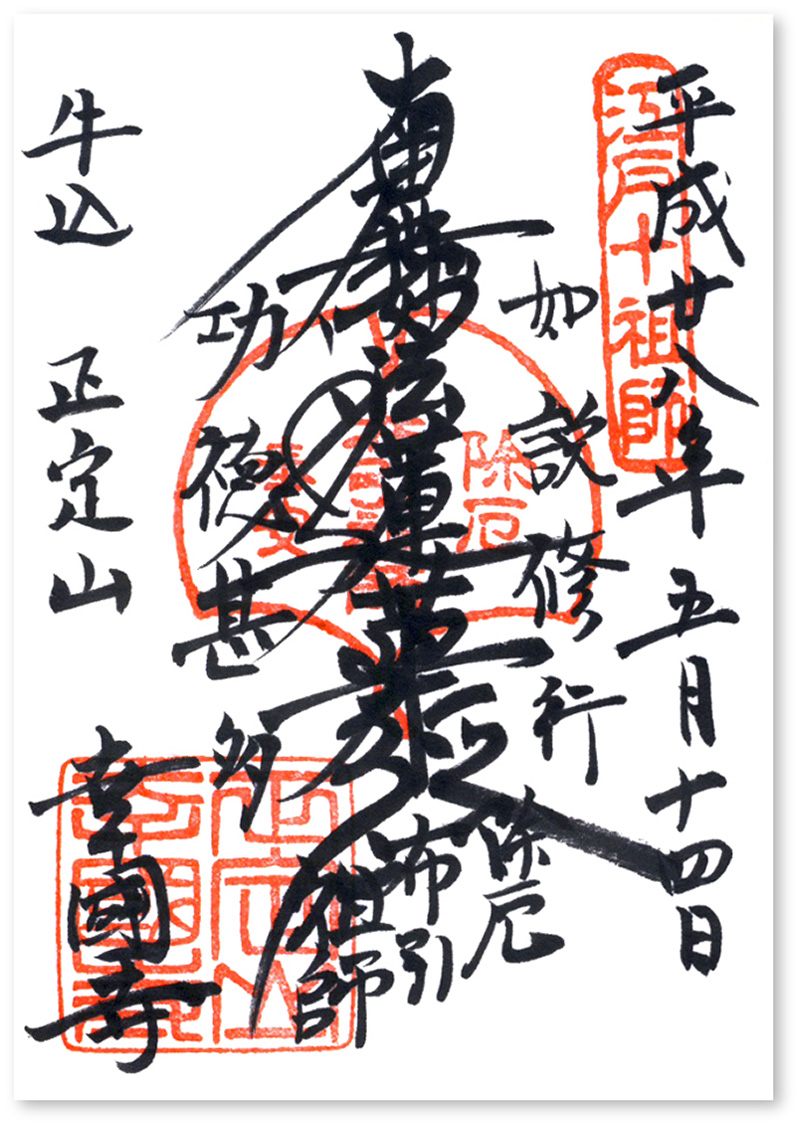 平成廿八年 五月十四日
江戸十祖師
如説修行
除厄
南無妙法蓮華経
除厄
布引
祖師
功徳甚多
牛込 正定山
幸國寺
正定山
幸國寺